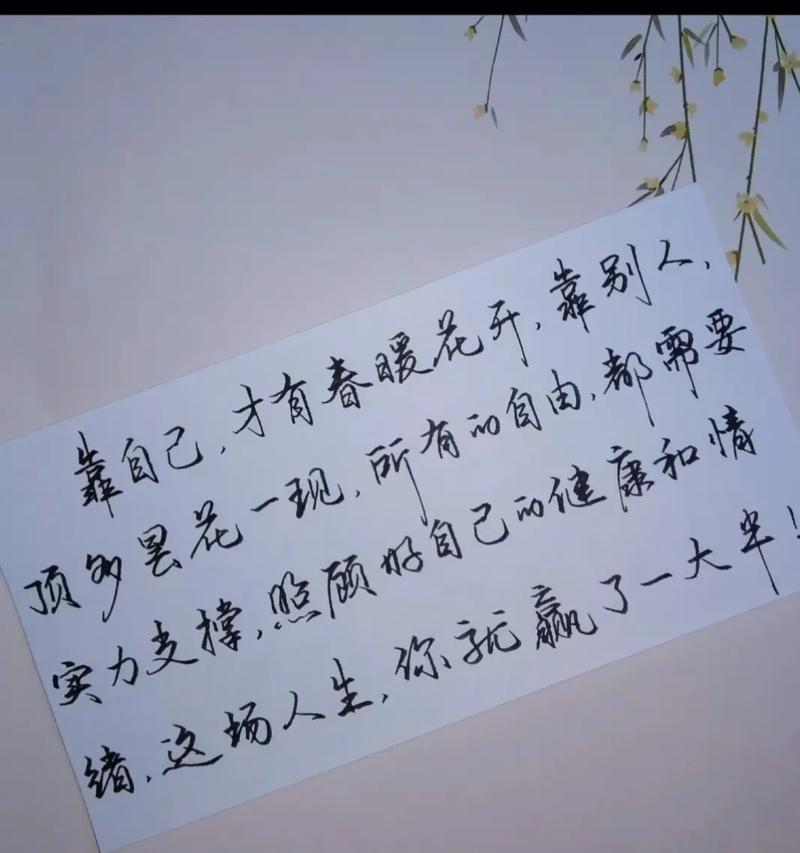 靠自己,才有春暖花开,靠别人,
顶多昙花一现,所有的自由,都需要
实力支撑,照顾好自己的健康和情
绪,这场人生,你就赢了一大半!